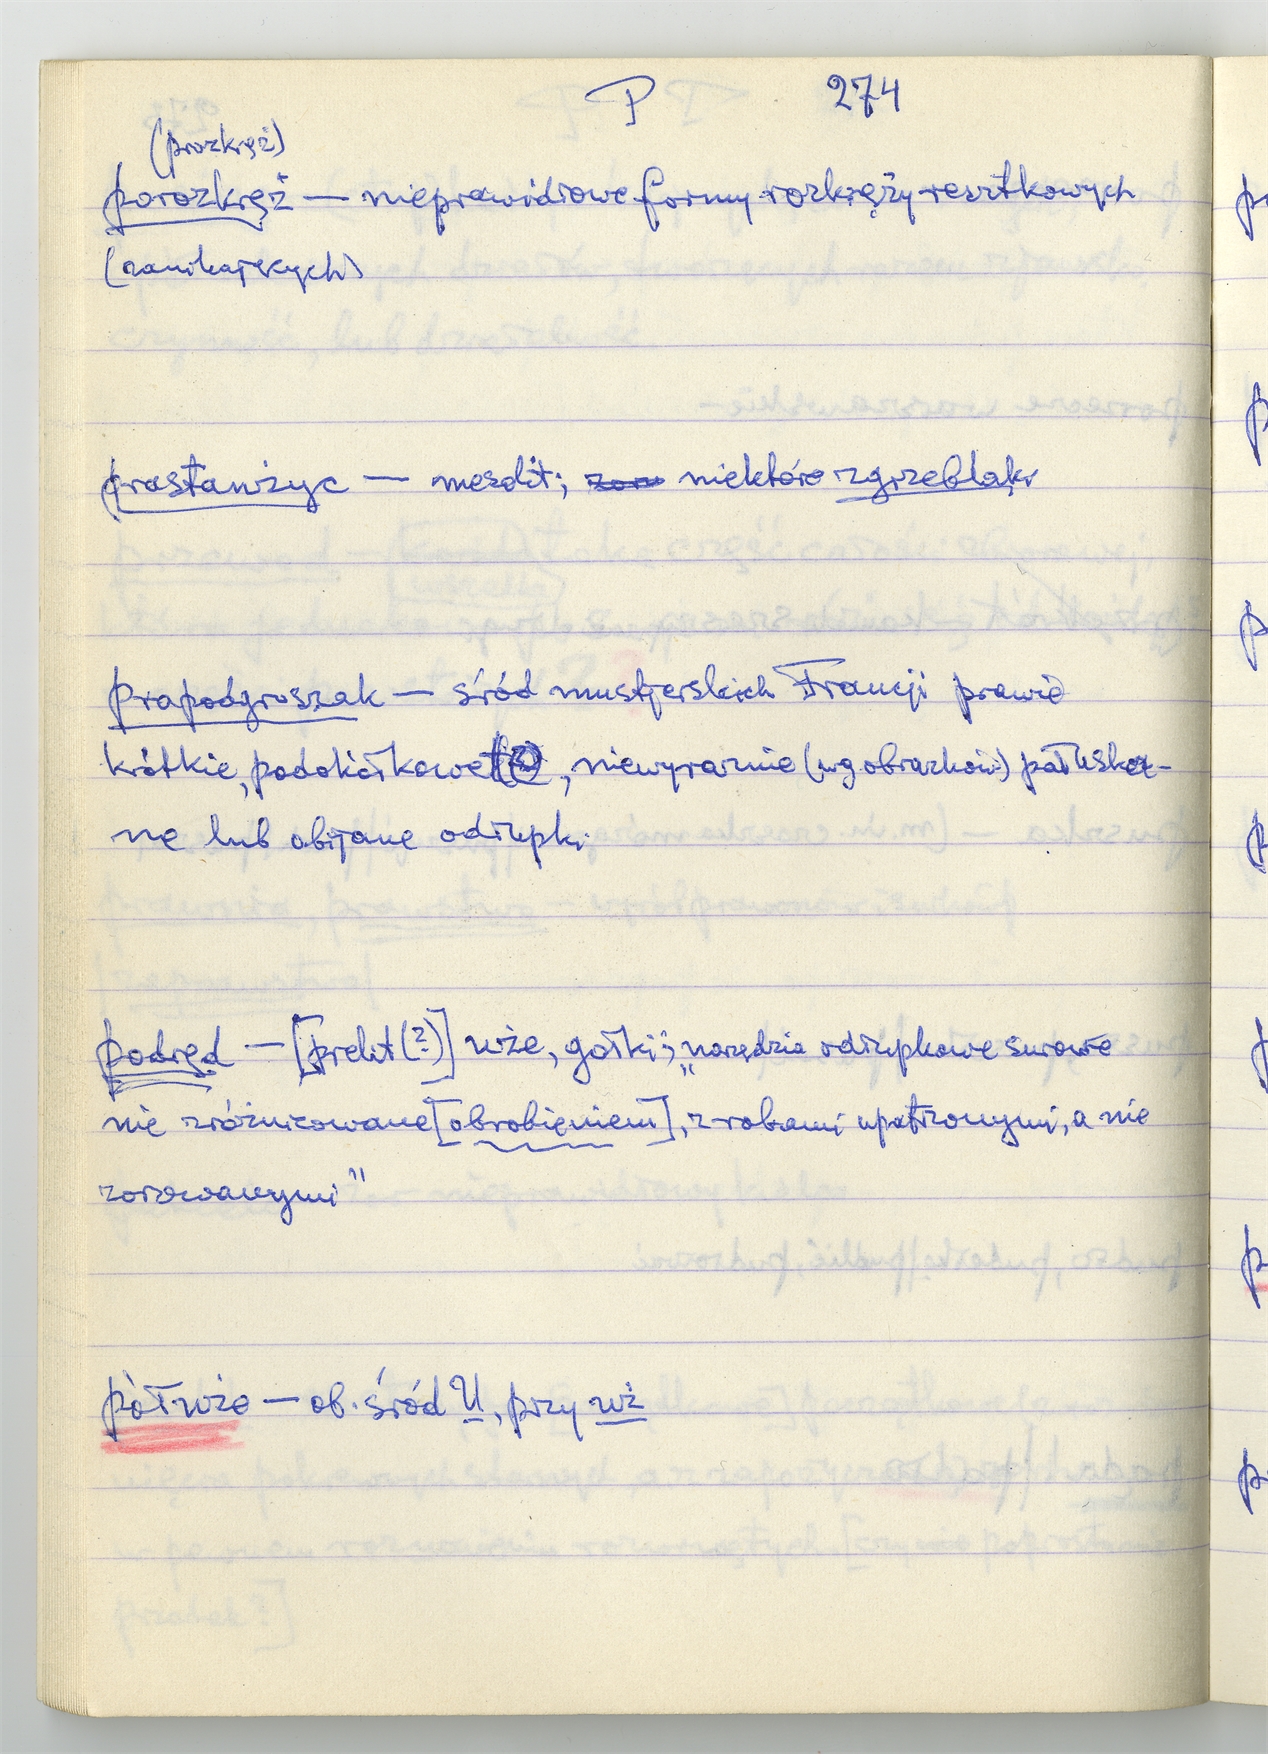 P 274
(prozkręż)
porozkręż — nieprawidłowe formy rozkręży resztkowych
(zanikających)
prastawżyc — mezolit; niektóre zgrzeblaki
prapodgroszak — śród mustjerskich Francji prawie
krótkie, podokiółkowe (?), niewyraźnie (wg obrazków) półłuskoz-
ne lub obijane odłupki
podręd — [prelit(?)] wże, gołki; „narzędzia odłupkowe surowe
nie zróżnicowane [obrobieniem], z robami upatrzonymi, a nie
"
półwże — ob. śród U, przy wż